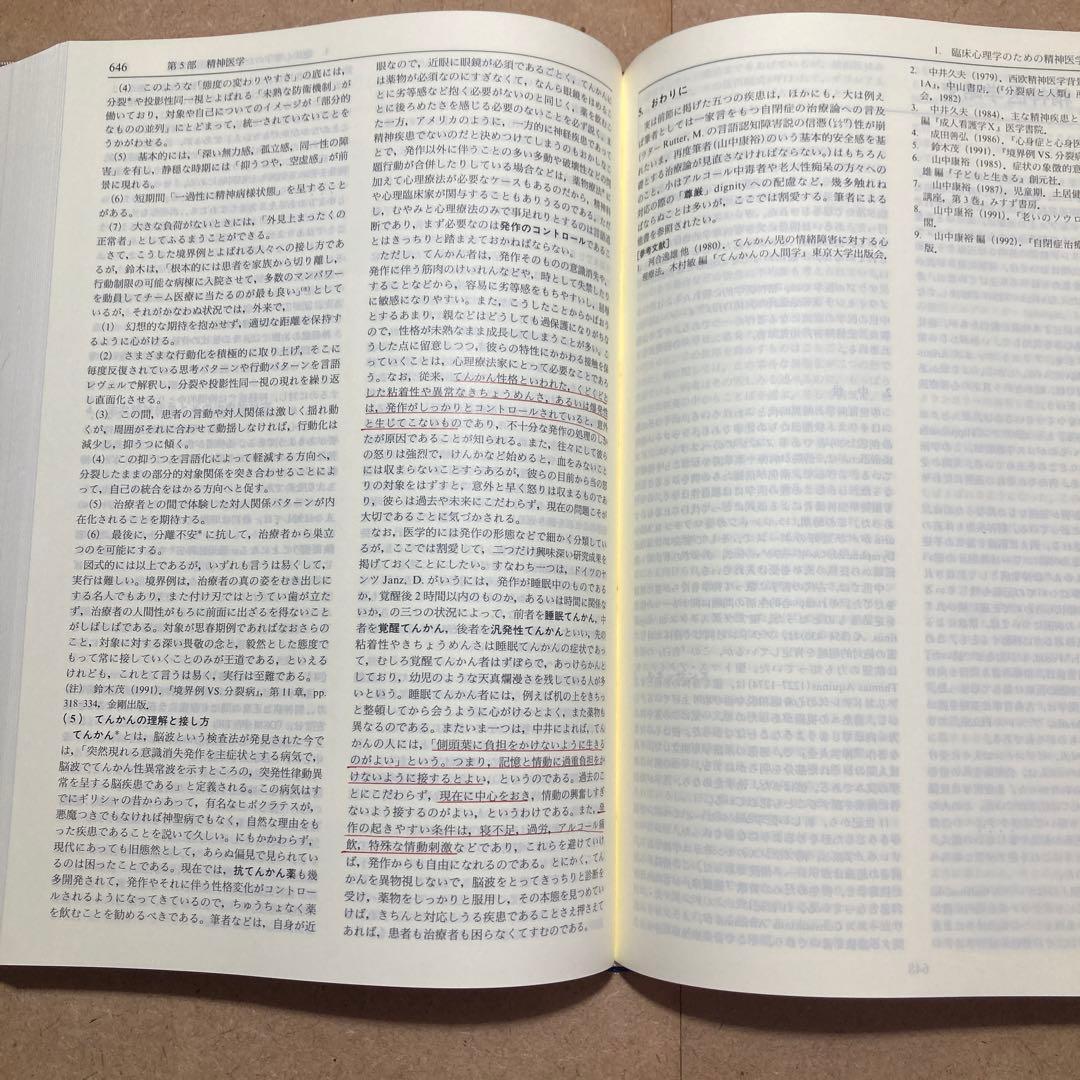 646 第5部 精神医学
(4) このような「態度の変わりやすさ」の底には,
分裂*や投影性同一視とよばれる「未熟な防衛機制」が
働いており, 対象や自己についてのイメージが「部分的
なものの並列」にとどまって, 統一されていないことを
うかがわせる。
(5) 基本的には,「深い無力感, 孤立感, 同一性の障
害」を有し, 静穏な時期には「抑うつや, 空虚感」が前
景に現れる。
(6) 短期間「一過性に精神病様状態」を呈すること
がある。
(7) 大きな負荷がないときには,「外見上まったくの
正常者」としてふるまうことができる。
さて, こうした境界例とよばれる人々への接し方であ
るが, 鈴木は,「根本的には患者を家族から切り離し,
行動制限の可能な病棟に入院させて, 多数のマンパワー
を動員してチーム医療に当たるのが最も良い」(注)として
いるが, それがかなわぬ状況では, 外来で,
(1) 幻想的な期待を抱かせず, 適切な距離を保持す
るように心がける。
(2) さまざまな行動化を積極的に取り上げ, そこに
毎度反復されている思考パターンや行動パターンを言語
レヴェルで解釈し, 分裂や投影性同一視の現れを繰り返
し直面化させる。
(3) この間, 患者の言動や対人関係は激しく揺れ動
くが, 周囲がそれに合わせて動揺しなければ, 行動化は
減少し, 抑うつに傾く。
(4) この抑うつを言語化によって軽減する方向へ,
分裂したままの部分的対象関係を突き合わせることによ
って, 自己の統合をはかる方向へと促す。
(5) 治療者との間で体験した対人関係パターンが内
在化されることを期待する。
(6) 最後に, 分離不安*に抗して, 治療者から巣立
つのを可能にする。
図式的には以上であるが, いずれも言うは易くして,
実行は難しい。境界例は, 治療者の真の姿をむき出しに
する名人でもあり, また付け刃ではとうてい歯が立た
ず, 治療者の人間性がもろに前面に出ざるを得ないこと
がしばしばである。対象が思春期例であればなおさらの
こと, 対象に対する深い畏敬の念と, 毅然とした態度で
もって常に接していくことのみが王道である, といえる
けれども, これとて言うは易く, 実行は至難である。
(注) 鈴木茂(1991).『境界例 VS. 分裂病』, 第11章, pp.
318-334, 金剛出版.
(5) てんかんの理解と接し方
てんかん*とは, 脳波という検査法が発見された今で
は,「突然現れる意識消失発作を主症状とする病気で,
脳波でてんかん性異常波を示すところの, 突発性律動異
常を呈する脳疾患である」と定義される。この病気はす
でにギリシャの昔からあって, 有名なヒポクラテスが,
悪魔つきでもなければ神聖病でもなく, 自然な理由をも
った疾患であることを説いて久しい。にもかかわらず,
現代にあっても旧態然として, あらぬ偏見で見られてい
るのは困ったことである。現在では, 抗てんかん薬も幾
多開発されて, 発作やそれに伴う性格変化がコントロー
ルされるようになってきているので, ちゅうちょなく薬
を飲むことを勧めるべきである。筆者などは, 自身が近
眼なので, 近眼に眼鏡が必須であるごとく, てんかんに
は薬物が必須なのにすぎなくて, なんら眼鏡をはめるこ
とに劣等感など抱く必要がないのと同じく, 薬を飲むこ
とに後ろめたさを感じる必要のないことを必ず説く。ま
た一方, アメリカのように, 一方的に神経疾患であって
精神疾患でないのだと決めつけてしまうのもおかしなこ
とで, 発作以外に伴うことの多い多動や破壊性などの問
題行動が合併したりしている場合などは, 薬物療法に
加えて心理療法が必要なケースもあるのだから, 精神科
や心理臨床家が関与することもありうるのである。ただ
し, むやみと心理療法のみで事足れりとするのは言語道
断であり, まず必要なのは発作のコントロールであるこ
とはきっちりと踏まえておかねばならない。
ただし, てんかん者は, 発作そのものの意識消失や,
発作に伴う筋肉のけいれんなどや, 時として失禁したり
することなどから, 容易に劣等感をもちやすいし,
に敏感になりやすい。また, こうしたことからかばおう
とするあまり, 親などはどうしても過保護になりがちな
ので, 性格が未熟なまま成長してしまうことが多い。こ
うした点に留意しつつ, 彼らの特性にかかわる接触を保
っていくことは, 心理療法家にとって必要なことであろ
う。なお, 従来, てんかん性格といわれた, くどくどと
した粘着性や異常なきちょうめんさ, あるいは爆発性
は, 発作がしっかりとコントロールされていると, 意外
と生じてこないものであり, 不十分な発作の処理のしか
たが原因であることが知られる。また, 往々にして彼ら
の怒りは強烈で, けんかなど始めると, 血をみないこと
には収まらないことすらあるが, 彼らの目前から当の怒
りの対象をはずすと, 意外と早く怒りは収まるものであ
り, 彼らは過去や未来にこだわらず, 現在の問題こそが
大切であることに気づかされる。
なお, 医学的には発作の形態などで細かく分類してい
るが, ここでは割愛して, 二つだけ興味深い研究成果を
掲げておくことにしたい。すなわち一つは, ドイツのヤ
ンツ Janz, D. がいうには, 発作が睡眠中のものである
か, 覚醒後2時間以内のものか, あるいは時間に関係な
いか, の三つの状況によって, 前者を睡眠てんかん, 中
者を覚醒てんかん, 後者を汎発性てんかんといい, 先の
粘着性やきちょうめんさは睡眠てんかんの症状であっ
て, むしろ覚醒てんかん者はずぼらで, あっけらかんと
しており, 幼児のような天真爛漫さを残している人が多
いという。睡眠てんかん者には, 例えば机の上をきちっ
と整頓してから会うように心がけるとよく, また薬物も
異なるのである。またいま一つは, 中井によれば, てん
かんの人には,「側頭葉に負担をかけないように生きる
のがよい」という。つまり, 記憶と情動に過重負担をか
けないように接するとよい, というのである。過去のこ
とにこだわらず, 現在に中心をおき, 情動の興奮しすぎ
ないよう接するのがよい, というわけである。また, 発
作の起きやすい条件は, 寝不足, 過労, アルコール痛
飲, 特殊な情動刺激などであり, これらを避けていけ
ば, 発作からも自由になれるのである。とにかく, てん
かんを異物視しないで, 脳波をとってきっちりと診断を
受け, 薬物をしっかりと服用し, その本態を見つめてい
けば, きちんと対応しうる疾患であることさえ押さえて
あれば, 患者も治療者も困らなくてすむのである。
1. 臨床心理学のための精神医学
5. おわりに
筆者は前節に掲げた五つの疾患は, ほかにも, 大は例え
ば筆者としては一家言をもつ自閉症の治療論への言及
(ラター Rutter, M. の言語認知障害説の信憑性が崩
れたいま, 再度筆者(山中康裕)のいう基本的安全感を基
礎とする治療論が見直さなければならない。)はもちろん
のこと, 小はアルコール中毒者や老人性痴呆の方々への
対応の際の「尊厳」dignity への配慮など, 幾多触れね
ばならぬことは多いが, ここでは割愛する。筆者による
他書を参照されたい。
[参考文献]
1. 河合逸雄他(1980). てんかん児の情緒障害に対する心
理療法. 木村敏編『てんかんの人間学』東京大学出版会.
2. 中井久夫(1979). 西欧精神医学背
1A』, 中山書店. (『分裂病と人類』
会, 1982)
3. 中井久夫(1984). 主な精神疾患と
編『成人看護学X』医学書院.
4. 成田善弘(1986).『心身症と心身医
5. 鈴木茂(1991).『境界例 VS. 分裂病
6. 山中康裕(1985). 症状の象徴的意
雄編『子どもと生きる』創元社.
7. 山中康裕(1987). 児童期. 土居健
講座, 第3巻』みすず書房.
8. 山中康裕(1991).『老いのソウロ
閣.
9. 山中康裕編(1992).『自閉症治療
版.